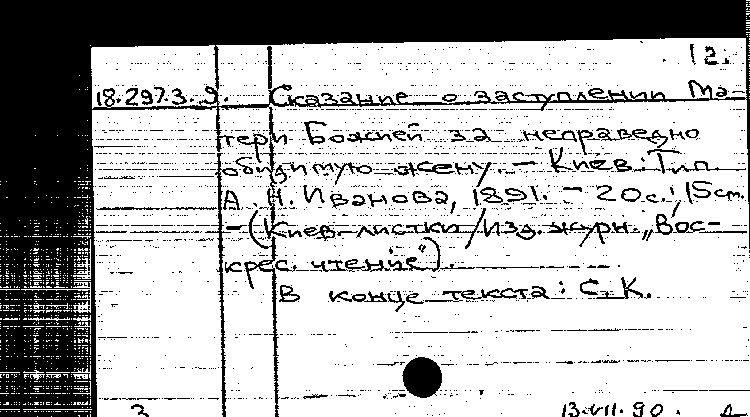 12.
18.297.3.9. Сказание о заступлении Ма-
тери Божией за неправедно
обидимую жену. – Киев: Тип.
А. Н. Иванова, 1891. – 20 с.; 15 см.
– (Киев. листки / Изд. журн. „Вос-
крес. чтение").
В конце текста: С. К.
3 13.VII.90.